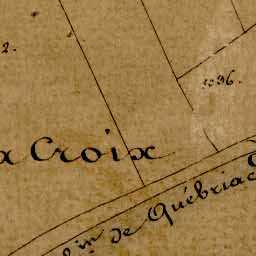 2.
1036.
a Croix
in de Québriac